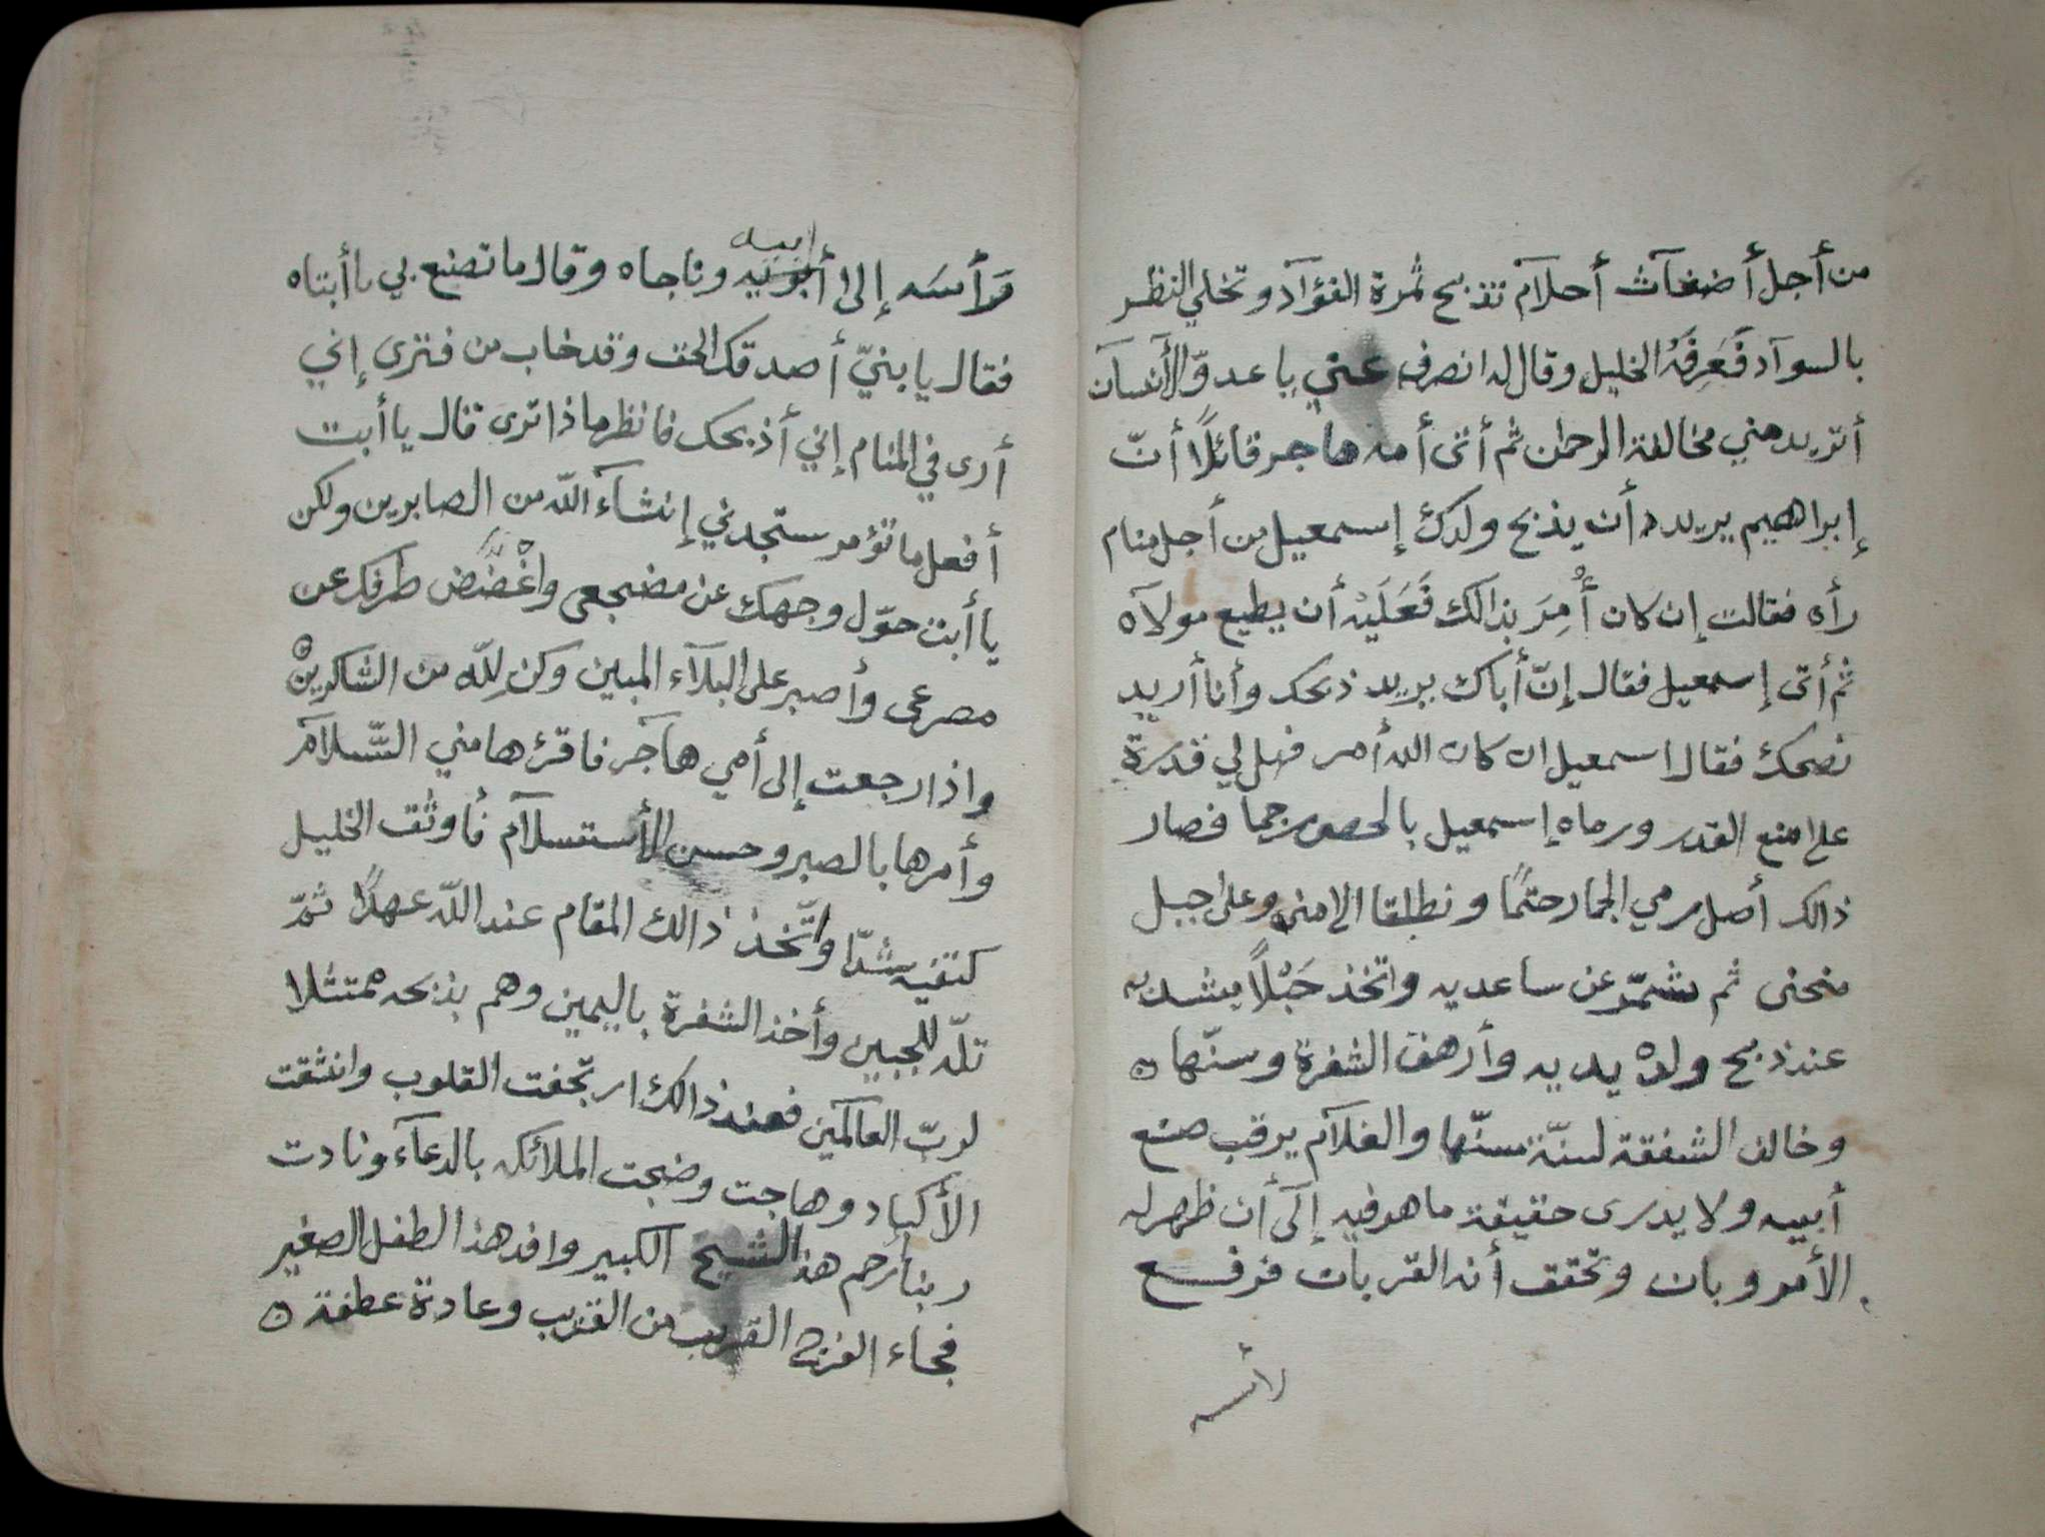 من أجل أضغاث أحلآم تذبح ثمرة الفؤآد وتخلي النظر
بالسوآد فَعَرِفَهُ الخليل وقال له انصرف عني يا عدوّ الأنسآن
أتريد مني مخالفة الرحمٰن ثم أتى أمه هاجر قائلًا أنّ
إبراهيم يريد أن يذبح ولدك إسمعيل من أجل منام
رأه فقالت إن كان أُمِرَ بذالك فَعَلَيْهِ أن يطيع مولآه
ثم أتى إسمعيل فقال إنّ أباك يريد ذبحك وأنا أريد
نصحك فقال اسمعيل ان كان الله أمر فهل لي قدرة
على منع القدر ورماه إسمعيل بالحصى رجما فصار
ذالك أصل رمي الجمار حتمًا ونطلقا الى منى وعلى جبل
منحنى ثم شمّر عن ساعديه واتخذ حَبْلًا يشد به
عند ذبح ولده يديه وأرهف الشفرة وسنّها
وخالف الشفقة لسنّة سنّها والغلآم يرقب صنع
أبيه ولا يدرى حقيقة ما هو فيه إلى أن ظهر له
الأمر وبان وتحقق أنه القربان فرفع
رأسه
رَأسَه إلى أبويه ابيه وناجاه وقال ما تصنع بي ياأبتاه
فقال يا بنيّ أصدقك الحق وقد خاب من فترى إني
أرى في المنام إني أذبحك فانظر ماذا ترى قال يا أبت
أفعل ما تؤمر ستجدني إنشآء اللّه من الصابرين ولكن
يا أبت حوّل وجهك عن مضجعى واغْضُض طرفك عن
مصرعى وأصبر على البلآء المبين وكن لِلّه من الشاكرين
واذا رجعت إلى أمي هآجر فاقرئها مني السّلآم
وأمرها بالصبر وحسن الأستسلآم فأوثق الخليل
كتفيه شدّا واتّخذ ذالك المقام عند اللّه عهدًا ثمّ
تلّه للجبين وأخذ الشفرة باليمين وهم بذبحه ممتثلا
لربّ العآلمين فعند ذالك ارتجفت القلوب وانشقت
الأكباد وهاجت وضجت الملائكه بالدعآء ونادت
ربنا ارحم هذا الشيخ الكبير وافد هذا الطفل الصغير
فجاء الفرج القريب من القريب وعادة عطفة